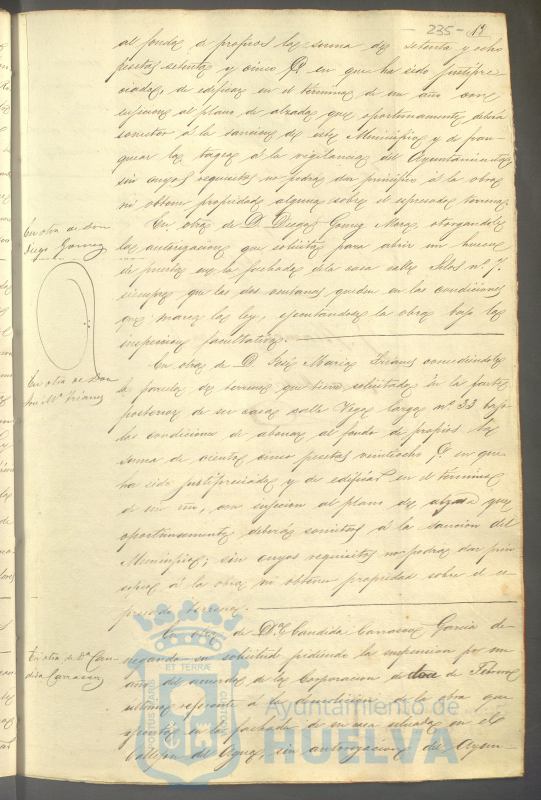 - 235 -
al fondo de propios la suma de setenta y ocho
pesetas setenta y cinco en que ha sido justipre-
ciado, de edificar en el término de un año con
sujecion al plano de alzada que oportunamente deberá
someter á la sancion de este Municipio y de fran-
quear la tragea á la vigilancia del Ayuntamiento
sin cuyos requisitos no podrá dar principio á la obra
ni obtener propiedad alguna sobre el espresado terreno.
En otra de don
Diego Gomez
En otra de D. Diego Gomez Mora, otorgandole
la autorizacion que solicita para abrir un hueco
de puerta en la fachada de la casa calle Silos nº. 7.
siempre que las dos ventanas queden en las condiciones
que marca la ley, ejecutandose la obra bajo la
inspeccion facultativa.
En otra de Don
José Mª Trianes
En otra de D. José Maria Trianes concediendole
la parcela de terreno que tiene solicitada en la parte
posterior de su casa calle Vega Larga nº. 33 bajo
las condiciones de abonar al fondo de propios la
suma de ciento cinco pesetas veintiocho en que
ha sido justipreciada y de edificar en el término
de un año, con sujecion al plano de alzada que
oportunamente deberá someter á la sancion del
Municipio; sin cuyos requisitos no podrá dar prin-
cipio á la obra ni obtener propiedad sobre el es-
presado terreno.
En otra de Dª Can-
dida Carrasco
En otra de Dª Candida Carrasco Garcia de-
negando su solicitud pidiendo la suspension por un
año del acuerdo de la Corporacion de de
ultimo referente á la demolicion de la obra que
ejecutó en la fachada de su casa situada en el
Callejon del Agua, sin autorizacion del Ayun-
ET TERRÆ
PORTUS MARIS
CUSTODIO
Ayuntamiento de
HUELVA